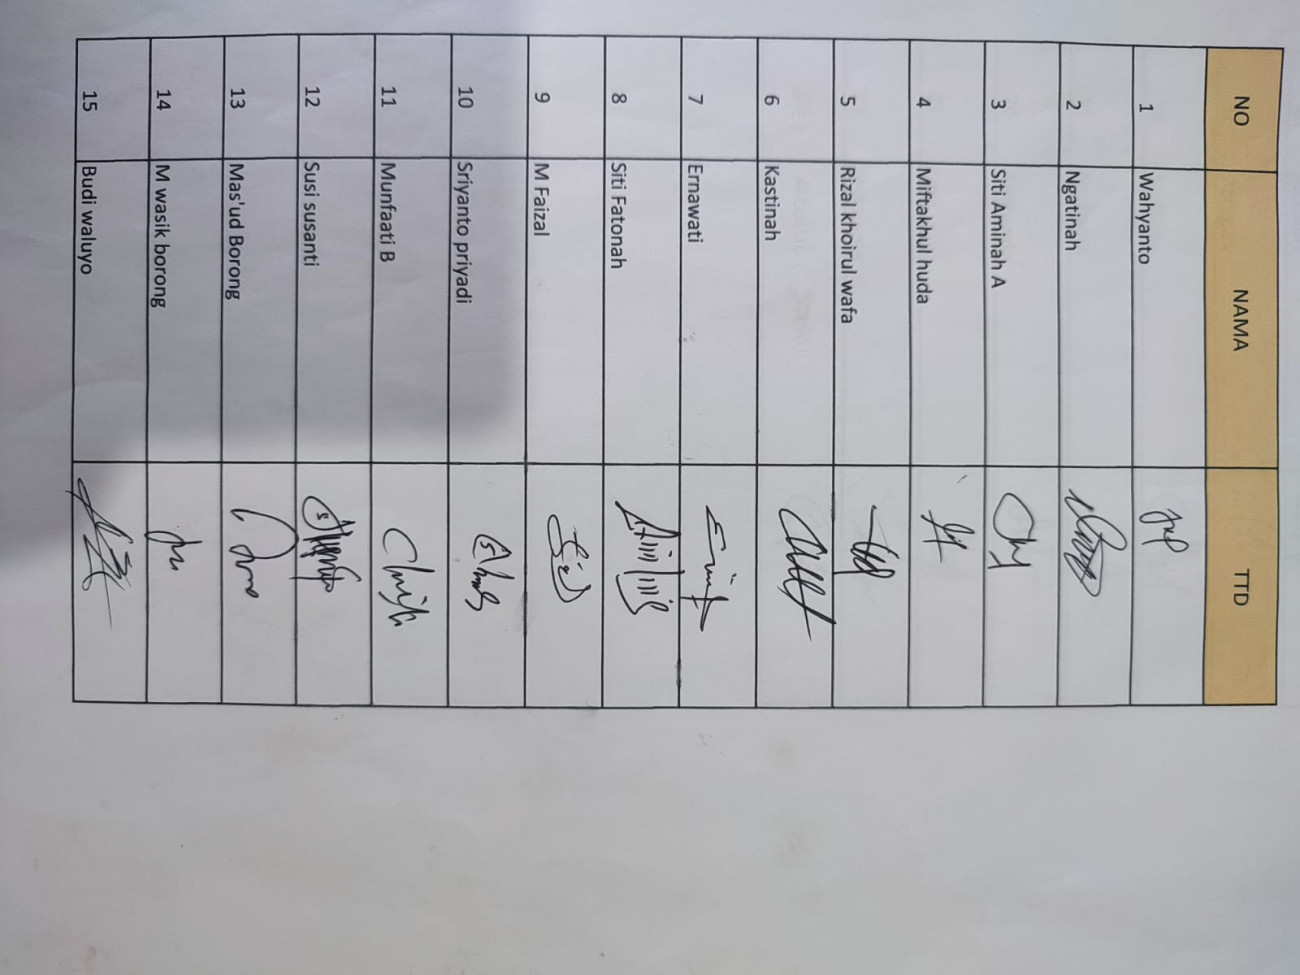 NO NAMA TTD
1 Wahyanto
2 Ngatinah
3 Siti Aminah A
4 Miftakhul huda
5 Rizal khoirul wafa
6 Kastinah
7 Ernawati
8 Siti Fatonah
9 M Faizal
10 Sriyanto priyadi
11 Munfaati B
12 Susi susanti
13 Mas'ud Borong
14 M wasik borong
15 Budi waluyo